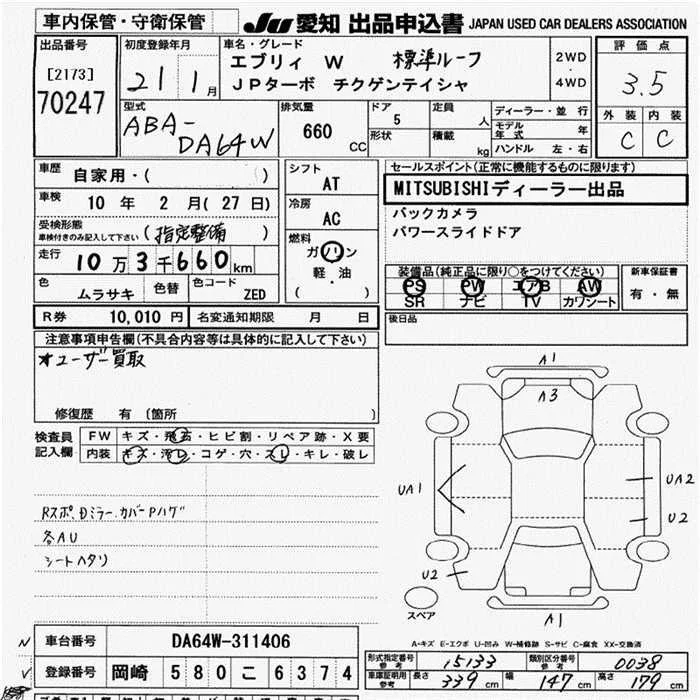 車内保管・守衛保管
JU 愛知 出品申込書 JAPAN USED CAR DEALERS ASSOCIATION
出品番号
[2173]
70247
初度登録年月
21 1月
車名・グレード
エブリィ W 標準ルーフ
JPターボ チクゲンテイシャ
2WD
・
4WD
評価点
3.5
外装 内装
C C
型式
ABA-
DA64W
排気量
660
CC
ドア
5
形状
定員
人
積載
kg
ディーラー・並行
モデル年式 年
ハンドル 左・右
車歴
自家用・( )
車検
10年 2月(27日)
受検形態
車検付きのみ記入して下さい (指定整備)
走行
10万3千660km
色
ムラサキ
色替
色コード
ZED
シフト
AT
冷房
AC
燃料
ガソリン
軽・油
( )
セールスポイント(正常に機能するものに限ります)
MITSUBISHIディーラー出品
バックカメラ
パワースライドドア
装備品(純正品に限り○をつけてください)
PS PW エアB AW
SR ナビ TV カワシート
新車保証書
有・無
後日品
R券 10,010円
名変通知期限 月 日
注意事項申告欄(不具合内容等は具体的に記入して下さい)
*ユーザー買取
修復歴 有 (箇所 )
検査員
記入欄
FW キズ・飛石・ヒビ割・リペア跡・X要
内装 キズ・汚レ・コゲ・穴・スレ・キレ・破レ
Rスポ、Dミラーカバー Pハゲ
各AU
シートヘタリ
A1
A3
UA1
UA2
U2
U2
スペア
A1
A-キズ E-エクボ U-凹み W-補修跡 S-サビ C-腐食 XX-交換済
車台番号 DA64W-311406
登録番号 岡崎 580 こ 6374
型式指定番号
参考
15133
類別区分番号
参考
0038
車庫証明用
参考
長さ 339cm 幅 147cm 高さ 179cm